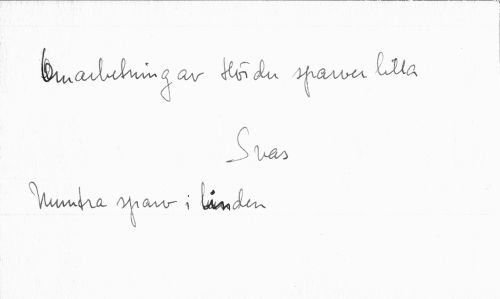 Omarbetning av Hör du sparven lilla
Svas
Muntra sparv i linden